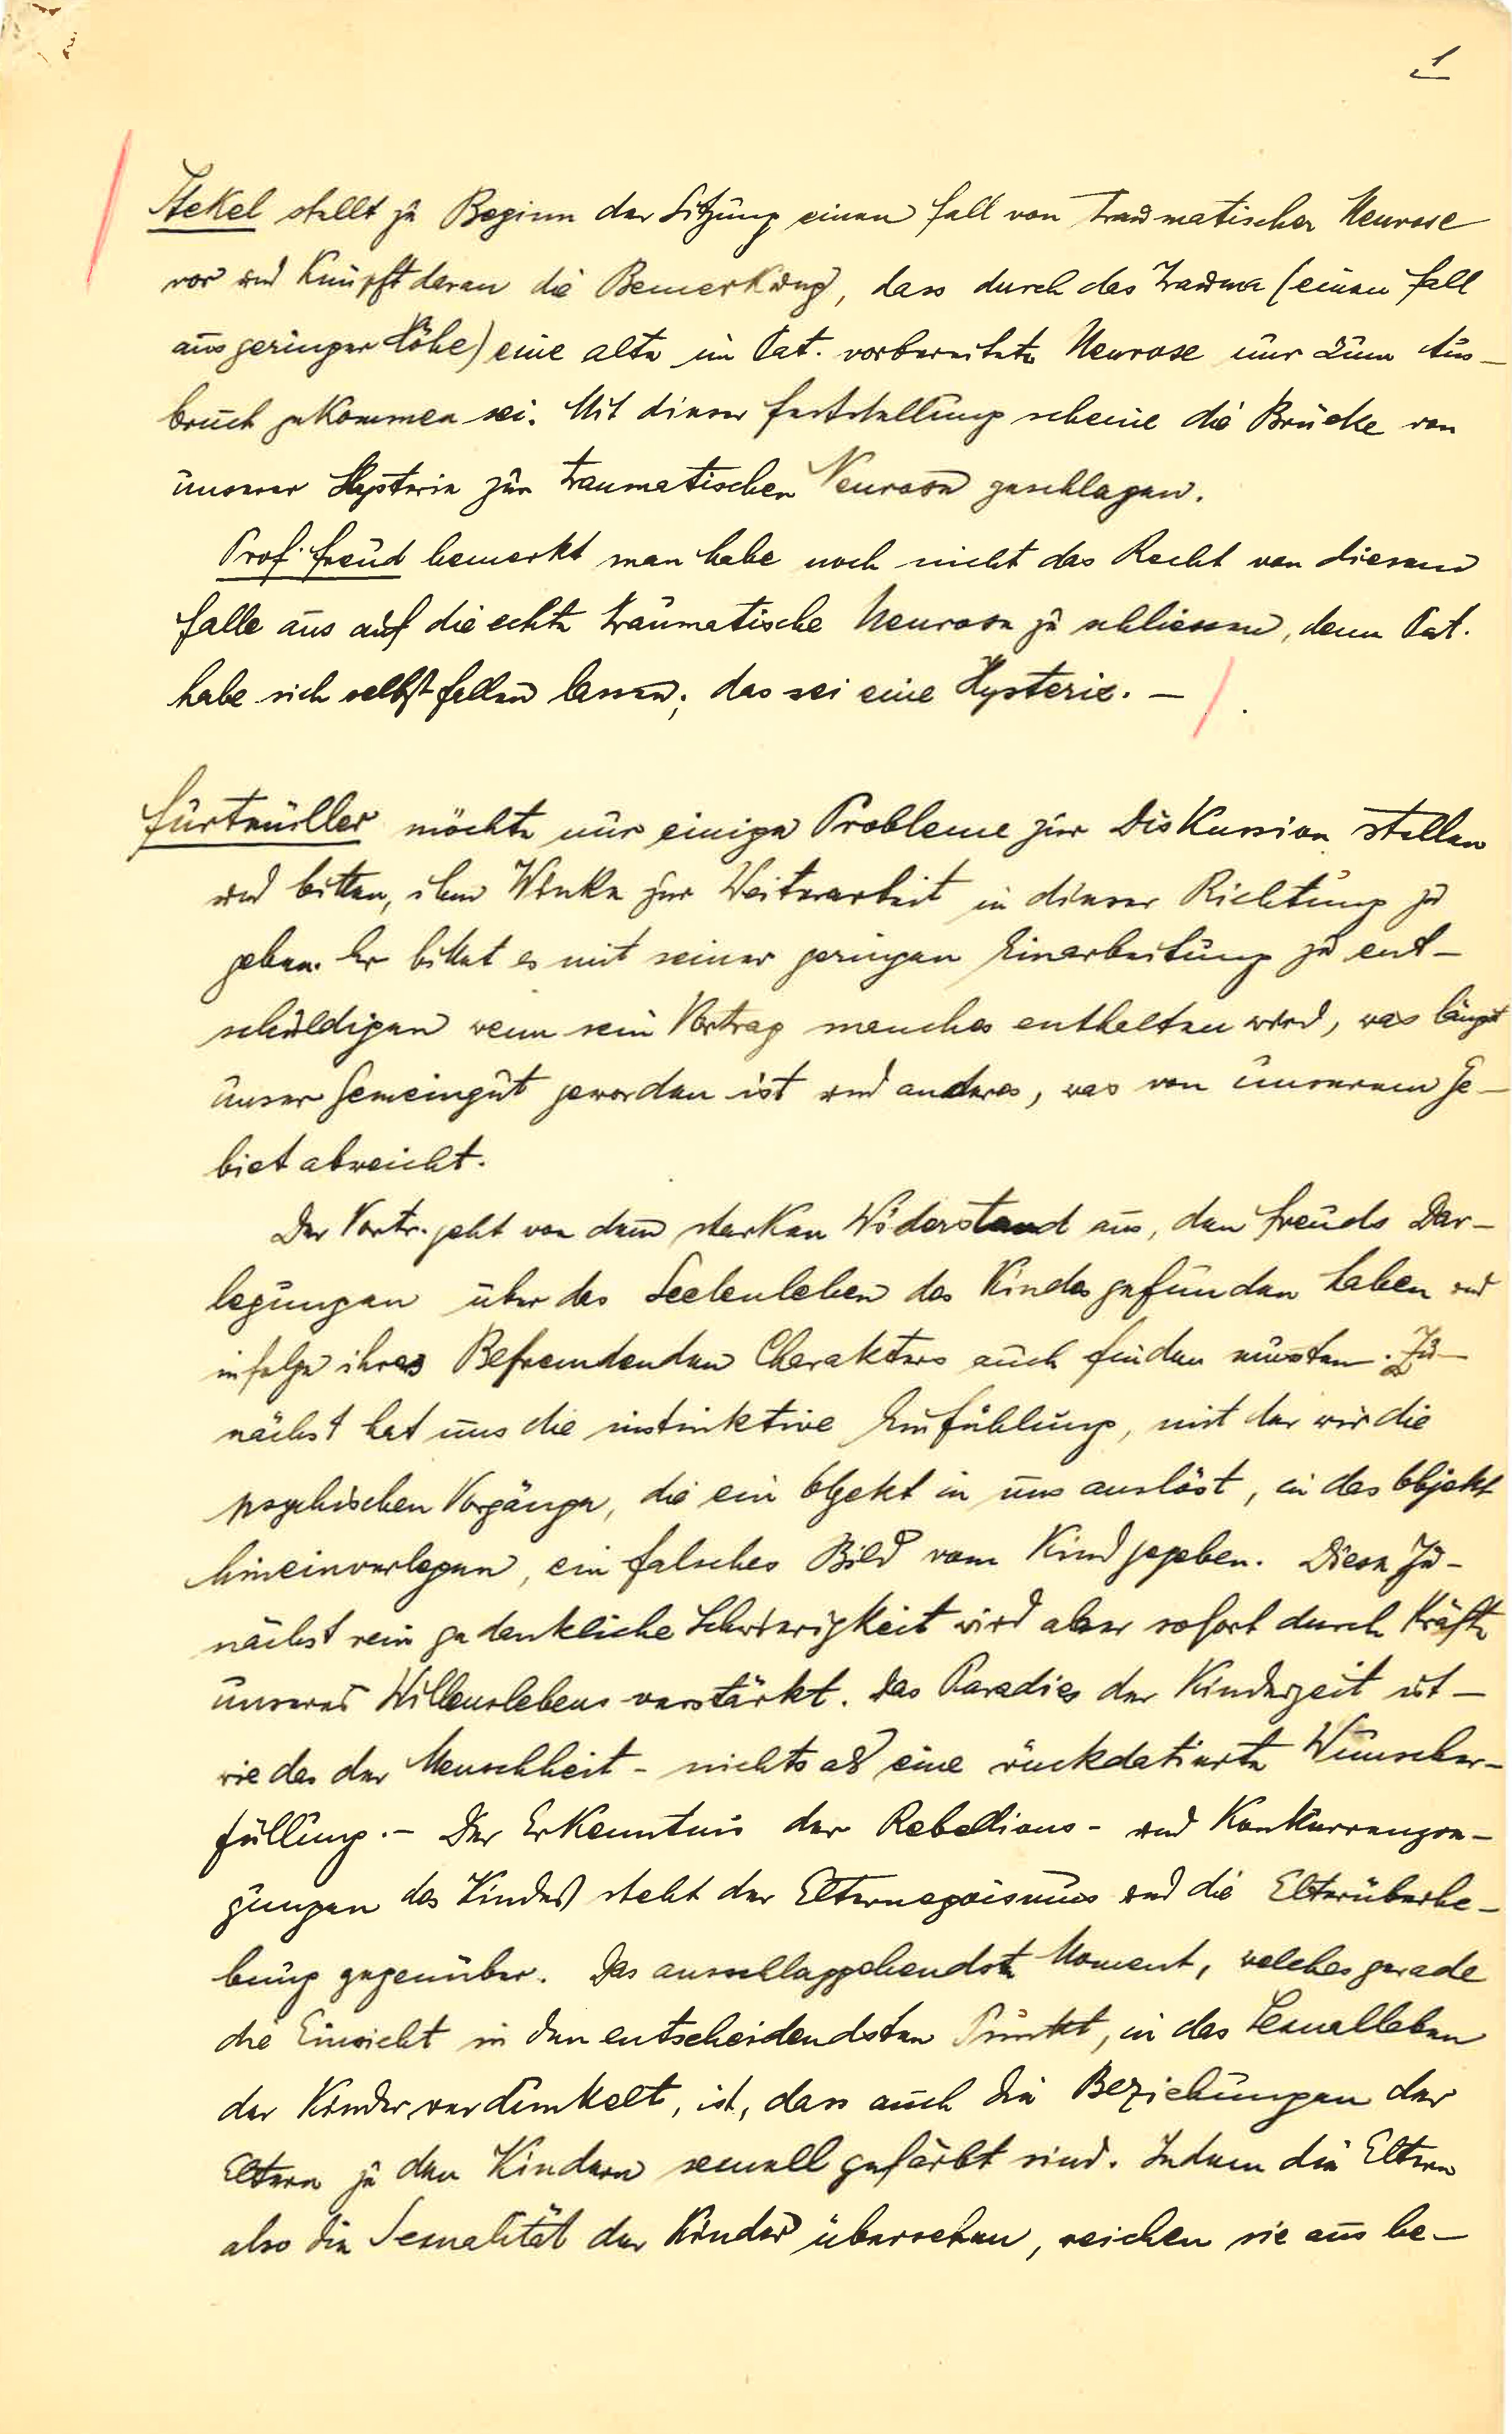 1
Stekel stellt zu Beginn der Sitzung einen Fall von traumatischer Neurose
vor und knüpft daran die Bemerkung, dass durch das Trauma (einen Fall
aus geringer Höhe) eine alte im Pat. vorbereitete Neurose nur zum Aus-
bruch gekommen sei. Mit dieser Feststellung scheine die Brücke von
unserer Hysterie zur traumatischen Neurose geschlagen.
Prof. Freud bemerkt man habe noch nicht das Recht von diesem
Falle aus auf die echte traumatische Neurose zu schliessen, denn Pat.
habe sich selbst fallen lassen; das sei eine Hysterie. —
Furtmüller möchte nur einige Probleme zur Diskussion stellen
und bitten, ihm Winke zur Weiterarbeit in dieser Richtung zu
geben. Er bittet es mit seiner geringen Einarbeitung zu ent-
schuldigen wenn sein Vortrag manches enthalten wird, was längst
unser Gemeingut geworden ist und anderes, was von unserem Ge-
biet abweicht.
Der Vortr. geht von dem starken Widerstand aus, den Freuds Dar-
legungen über das Seelenleben des Kindes gefunden haben und
infolge ihres Befremdenden Charakters auch finden mussten. Zu-
nächst hat uns die instinktive Einfühlung, mit der wir die
psychischen Vorgänge, die ein Objekt in uns auslöst, in das Objekt
hineinverlegen, ein falsches Bild vom Kind gegeben. Diese zu-
nächst rein gedankliche Schwierigkeit wird aber sofort durch Kräfte
unseres Willenslebens verstärkt. Das Paradies der Kinderzeit ist —
wie das der Menschheit - nichts als eine rückdatierte Wunscher-
füllung. — Der Erkenntnis der Rebellions- und Konkurrenzre-
gungen des Kindes steht der Elternegoismus und die Elternüberhe-
bung gegenüber. Das ausschlaggebendste Moment, welches gerade
die Einsicht in den entscheidendsten Punkt, in das Sexualleben
der Kinder verdunkelt, ist, dass auch die Beziehungen der
Eltern zu den Kindern sexuell gefärbt sind. Indem die Eltern
also die Sexualität der Kinder übersehen, weichen sie aus be-